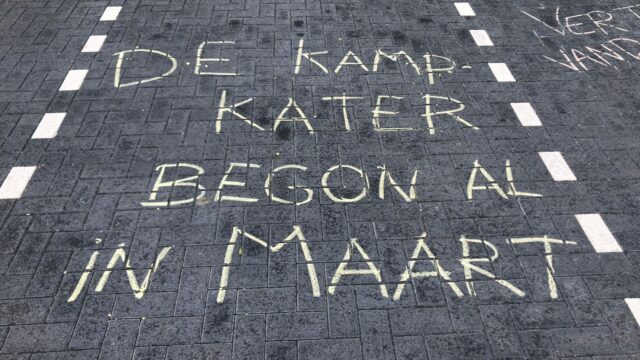 DE KAMP-
KATER
BEGON AL
iN MAART
VERT
VAND